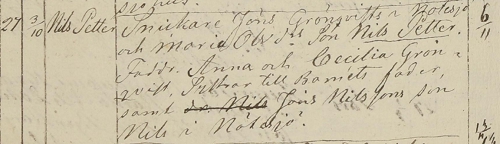 27 3/10 Nils Petter Snickare Jöns Grönqvists i Nötesjö 6/11
och Maria Ols dr Son Nils Petter.
Faddr. Anna och Cecilia Grön-
qvist, Systrar till Barnets fader,
samt dr. Nils Jöns Nilssons son
Nils i Nötesjö.